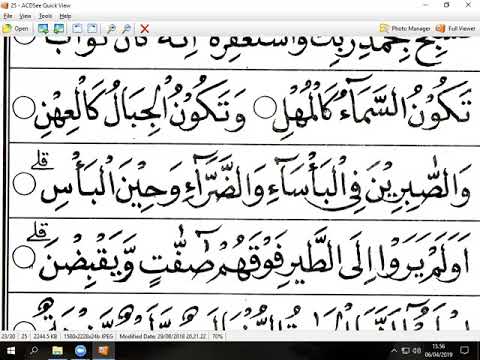 25 - ACDSee Quick View
File View Tools Help
Open Photo Manager Full Viewer
فَسَبِّحْ بِحَمْدِ رَبِّكَ وَاسْتَغْفِرْهُ اِنَّهٗ كَانَ تَوَّابًا
تَكُوْنُ السَّمَاۤءُ كَالْمُهْلِ ○ وَتَكُوْنُ الْجِبَالُ كَالْعِهْنِ ○
وَالصّٰبِرِيْنَ فِى الْبَأْسَاۤءِ وَالضَّرَّاۤءِ وَحِيْنَ الْبَأْسِ ○ قلے
اَوَلَمْ يَرَوْا اِلَى الطَّيْرِ فَوْقَهُمْ صٰۤفّٰتٍ وَّيَقْبِضْنَ ○ قلے
23/30 25 2244.5 KB 1580x2220x24b JPEG Modified Date: 29/08/2018 20.21.22 70%
15.56
06/04/2019